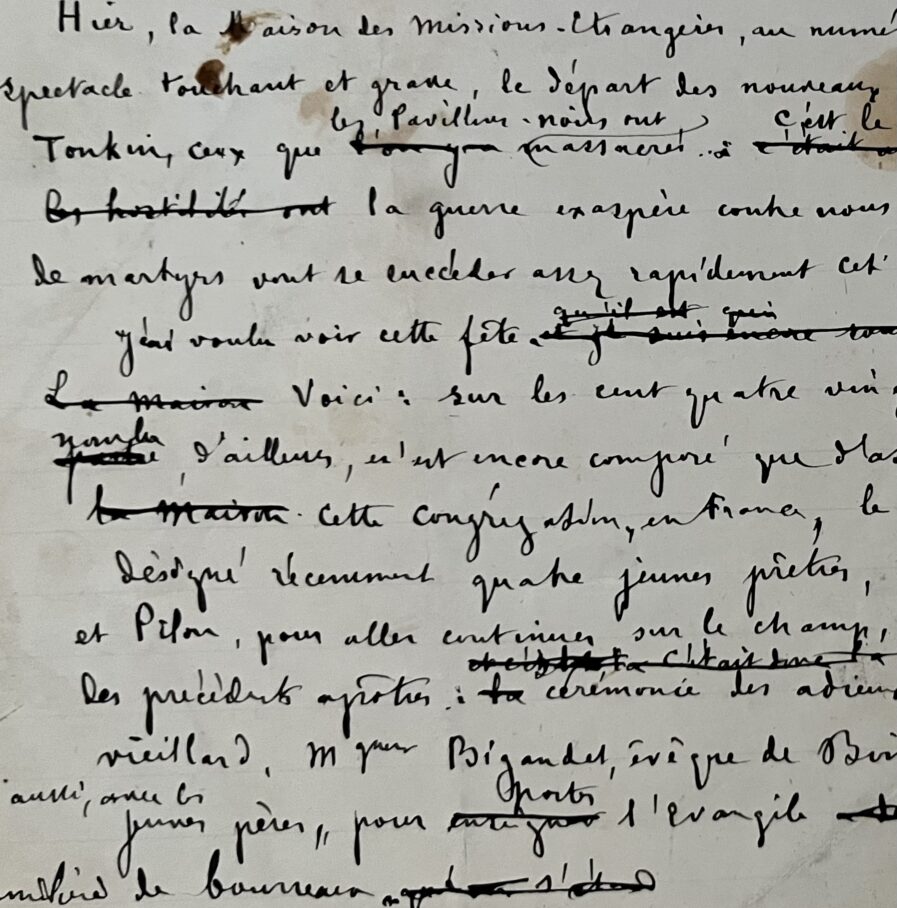 Hier, la Maison des Missions-Etrangères, au numé
spectacle touchant et grave, le départ des nouveaux
les Pavillons-noirs ont c'est le
Tonkin, ceux que l'on y a massacrés à c'était
les hostilités ont la guerre exaspère contre nous
de martyrs vont se succéder assez rapidement cet
J'ai voulu voir cette fête. et je suis encore
La maison Voici : sur les cent quatre vin
nombre
d'ailleurs, n'est encore composé que d'as
La Maison cette congrégation, en France, le
désigné récemment quatre jeunes prêtres,
et Pilon, pour aller continuer sur le champ,
c'était une
des précédents apôtres : la cérémonie des adieux
vieillard, Mgneur Bigandet, évêque de
aussi, avec les porter
jeunes pères, pour enseigner l'Evangile
de bourreaux